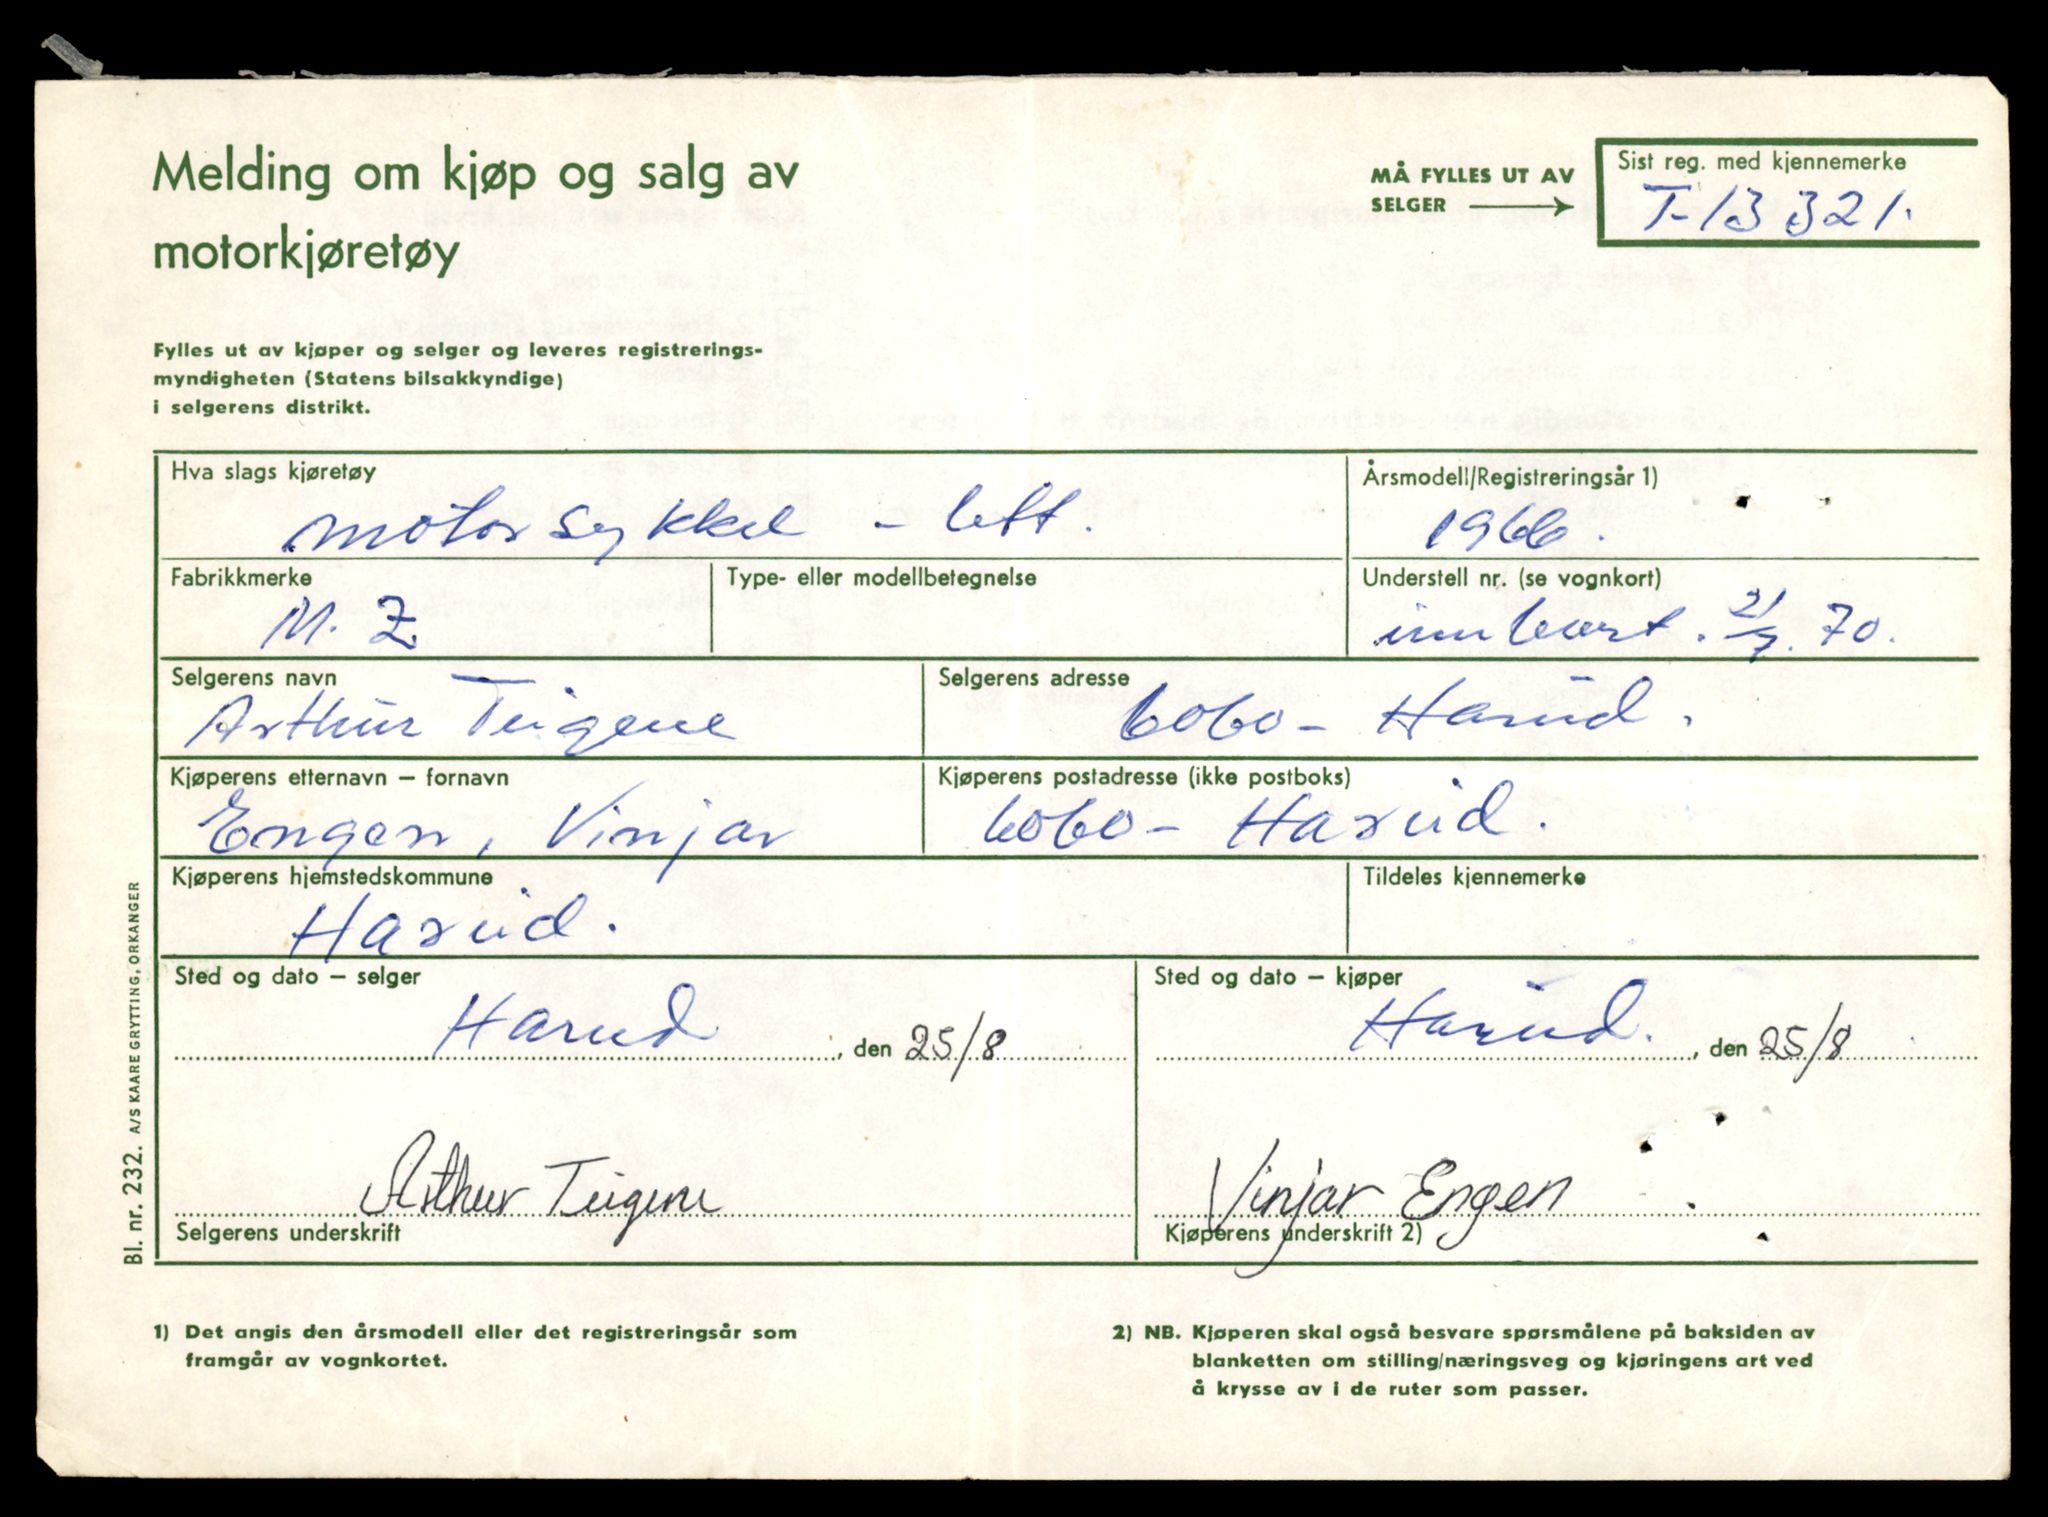 Melding om kjøp og salg av
motorkjøretøy
MÅ FYLLES UT AV
SELGER
Sist reg. med kjennemerke
T-13321.
Fylles ut av kjøper og selger og leveres registrerings-
myndigheten (Statens bilsakkyndige)
i selgerens distrikt.
Hva slags kjøretøy
motorsykkel - lett.
Årsmodell/Registreringsår 1)
1966.
Fabrikkmerke
M. Z
Type- eller modellbetegnelse
Understell nr. (se vognkort)
innlevert. 21/7. 70.
Selgerens navn
Arthur Teigene
Selgerens adresse
6060 - Hareid.
Kjøperens etternavn – fornavn
Engen, Vinjar
Kjøperens postadresse (ikke postboks)
6060 - Hareid.
Kjøperens hjemstedskommune
Hareid.
Tildeles kjennemerke
Sted og dato – selger
Hareid, den 25/8
Sted og dato – kjøper
Hareid., den 25/8
Arthur Teigene
Selgerens underskrift
Vinjar Engen
Kjøperens underskrift 2)
Bl. nr. 232. A/S KAARE GRYTTING, ORKANGER
1) Det angis den årsmodell eller det registreringsår som
framgår av vognkortet.
2) NB. Kjøperen skal også besvare spørsmålene på baksiden av
blanketten om stilling/næringsveg og kjøringens art ved
å krysse av i de ruter som passer.